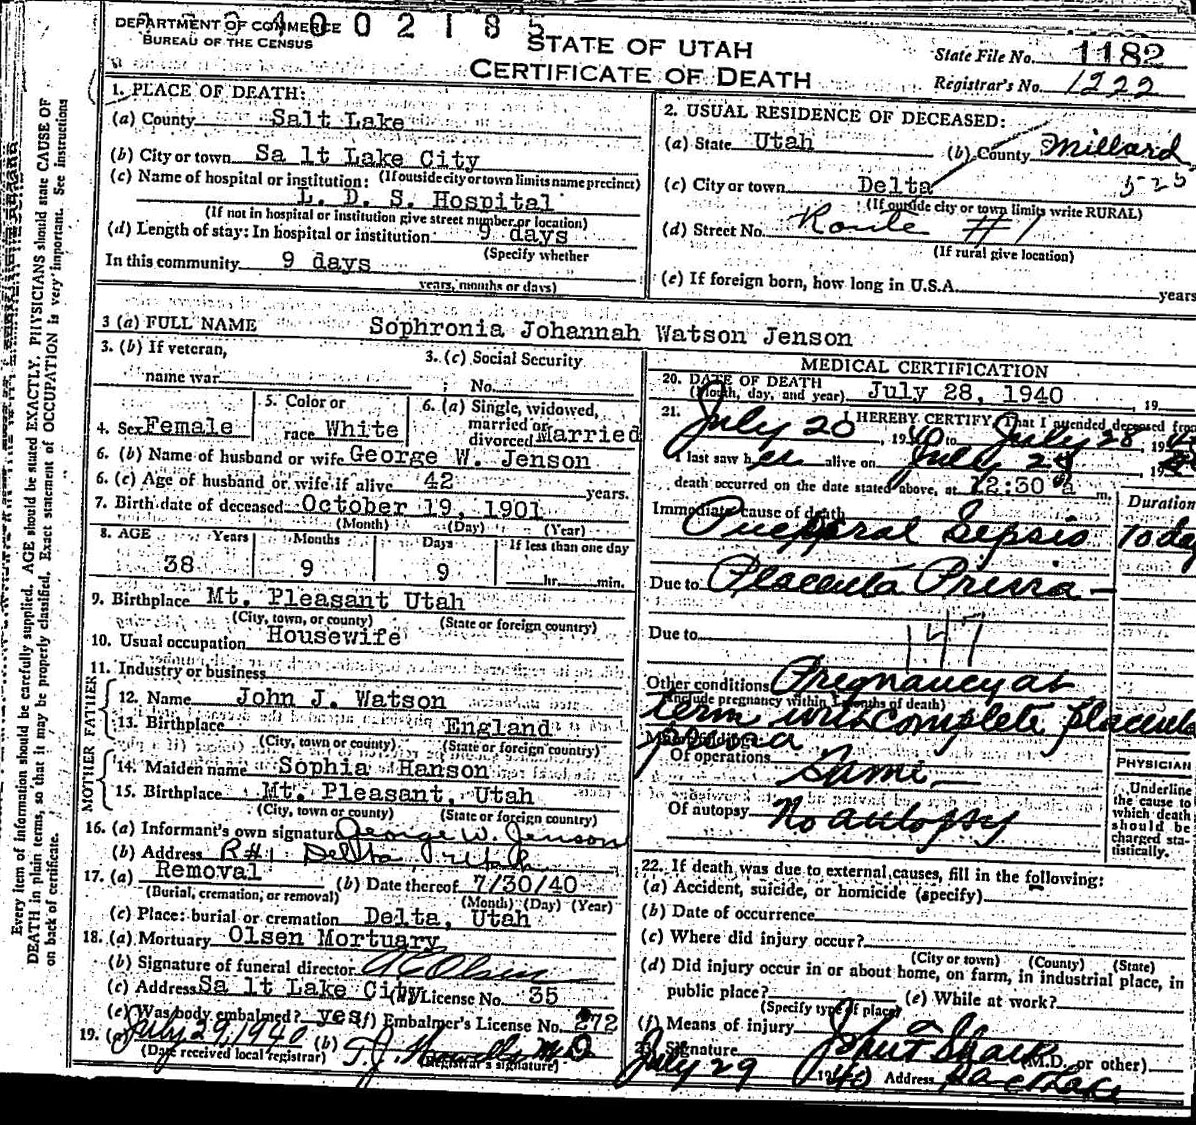 DEPARTMENT OF COMMERCE
BUREAU OF THE CENSUS
4 0 0 2 1 8 5
STATE OF UTAH
CERTIFICATE OF DEATH
State File No. 1182
Registrar's No. 1222
Every item of information should be carefully supplied. AGE should be stated EXACTLY. PHYSICIANS should state CAUSE OF
DEATH in plain terms, so that it may be properly classified. Exact statement of OCCUPATION is very important. See instructions
on back of certificate.
1. PLACE OF DEATH:
(a) County Salt Lake
(b) City or town Sa lt Lake City
(If outside city or town limits name precinct)
(c) Name of hospital or institution:
L. D. S. Hospital
(If not in hospital or institution give street number or location)
(d) Length of stay: In hospital or institution 9 days
(Specify whether
In this community 9 days
years, months or days)
2. USUAL RESIDENCE OF DECEASED:
(a) State Utah (b) County Millard
525
(c) City or town Delta
(If outside city or town limits write RURAL)
(d) Street No. Route #1
(If rural give location)
(e) If foreign born, how long in U.S.A. years
3 (a) FULL NAME Sophronia Johannah Watson Jenson
3. (b) If veteran,
name war
3. (c) Social Security
No.
4. Sex Female
5. Color or
race White
6. (a) Single, widowed,
married or
divorced Married
6. (b) Name of husband or wife George W. Jenson
6. (c) Age of husband or wife if alive 42 years.
7. Birth date of deceased October 19, 1901
(Month) (Day) (Year)
8. AGE Years Months Days If less than one day
38 9 9 hr. min.
9. Birthplace Mt. Pleasant Utah
(City, town, or county) (State or foreign country)
10. Usual occupation Housewife
11. Industry or business
FATHER
12. Name John J. Watson
13. Birthplace England
(City, town or county) (State or foreign country)
MOTHER
14. Maiden name Sophia Hanson
15. Birthplace Mt. Pleasant, Utah
(City, town or county) (State or foreign country)
16. (a) Informant's own signature George W. Jenson
(b) Address R#1 Delta Utah
17. (a) Removal (b) Date thereof 7/30/40
(Burial, cremation, or removal) (Month) (Day) (Year)
(c) Place: burial or cremation Delta, Utah
18. (a) Mortuary Olsen Mortuary
(b) Signature of funeral director A C Olsen
(c) Address Sa lt Lake City License No. 35
(e) Was body embalmed? yes (f) Embalmer's License No. 272
19. (a) July 29, 1940 (b) T. J. M.D.
(Date received local registrar) (Registrar's signature)
MEDICAL CERTIFICATION
20. DATE OF DEATH
(Month, day, and year) July 28, 1940, 19
21. I HEREBY CERTIFY, That I attended deceased from
July 20, 1940 to July 28, 19
I last saw her alive on July 28, 19
death occurred on the date stated above, at 12:30 a m.
Duration
Immediate cause of death
Puerperal Sepsis 10 day
Due to Placenta Previa
Due to
147
Other conditions Pregnancy at
(Include pregnancy within 3 months of death)
term with complete placenta
previa
Major findings:
Of operations Same
Of autopsy No autopsy
PHYSICIAN
Underline
the cause to
which death
should be
charged sta-
tistically.
22. If death was due to external causes, fill in the following:
(a) Accident, suicide, or homicide (specify)
(b) Date of occurrence
(c) Where did injury occur?
(City or town) (County) (State)
(d) Did injury occur in or about home, on farm, in industrial place, in
public place? (e) While at work?
(Specify type of place)
(f) Means of injury
23. Signature John F Sharp (M.D. or other)
July 29 1940 Address Salt Lake